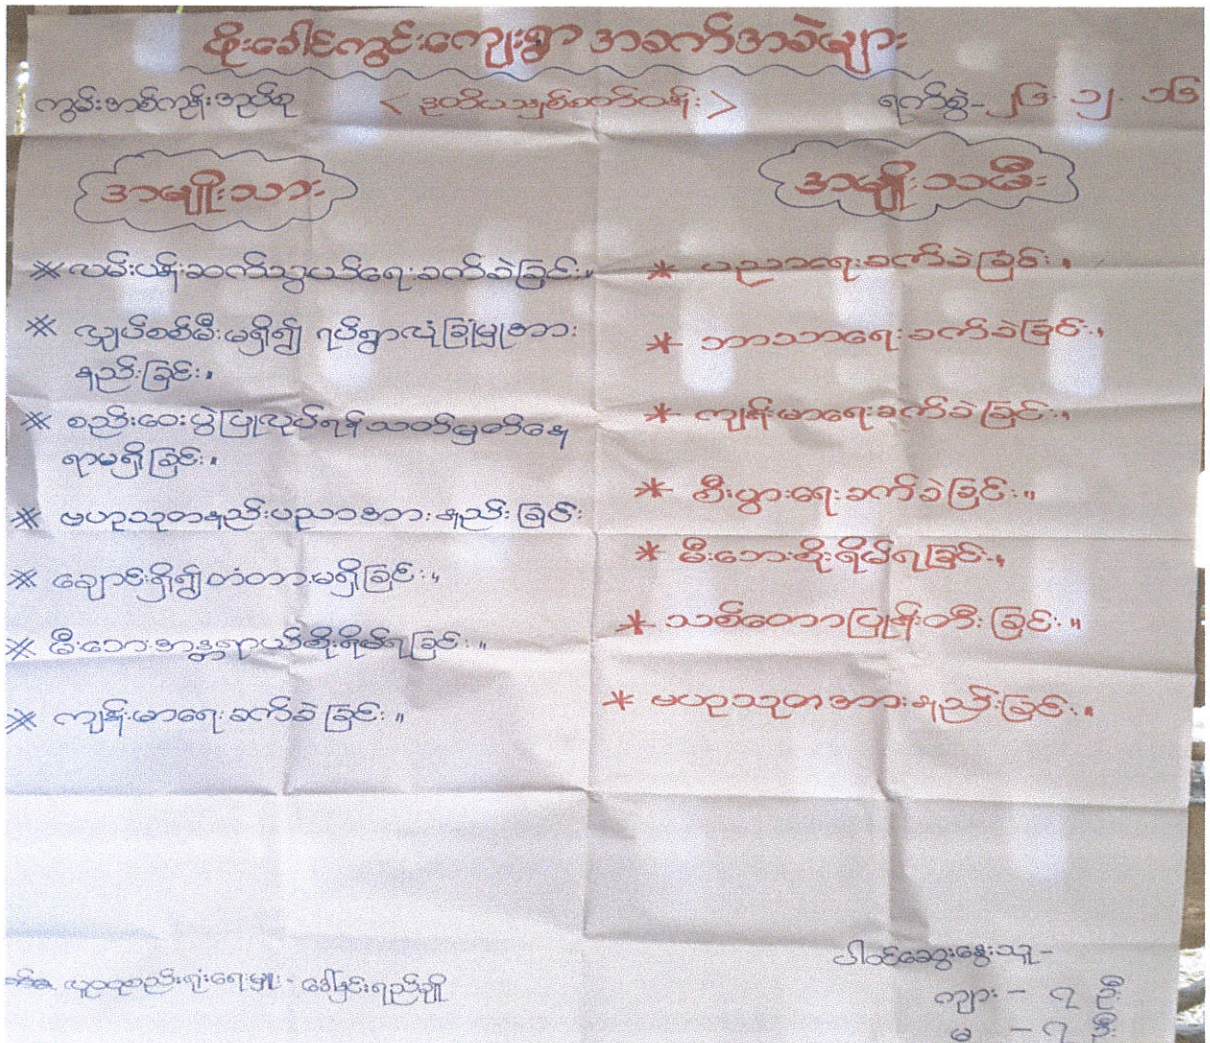 ဖိုးခေါင်ကွင်းကျေးရွာ အခက်အခဲများ
ကွမ်းတစ်ကုန်းအုပ်စု < ဒုတိယနှစ်စတ်ဝန်း > ရက်စွဲ- ၂၆. ၁၂. ၁၆
အမျိုးသား
※ လမ်းပန်းဆက်သွယ်ရေးခက်ခဲခြင်း။
※ လျှပ်စစ်မီးမရှိ၍ ရပ်ရွာလုံခြုံမှုအား
နည်းခြင်း။
※ စည်းဝေးပွဲပြုလုပ်ရန်သတ်မှတ်နေ
ရာမရှိခြင်း။
※ ဗဟုသုတနည်းပညာအားနည်းခြင်း
※ ချောင်းရှိ၍တံတားမရှိခြင်း။
※ မီးဘေးအန္တရာယ်စိုးရိမ်ရခြင်း။
※ ကျန်းမာရေးခက်ခဲခြင်း။
အမျိုးသမီး
* ပညာရေးခက်ခဲခြင်း။
* ဘာသာရေးခက်ခဲခြင်း။
* ကျန်းမာရေးခက်ခဲခြင်း။
* စီးပွားရေးခက်ခဲခြင်း။
* မီးဘေးစိုးရိမ်ရခြင်း။
* သစ်တောပြုန်းတီးခြင်း။
* ဗဟုသုတအားနည်းခြင်း။
လူထုစည်းရုံးရေးမှူး - ဒေါ်ခင်းရည်ချို
ပါဝင်ဆွေးနွေးသူ-
ကျား - ၇ ဦး
မ - ၇ ဦး